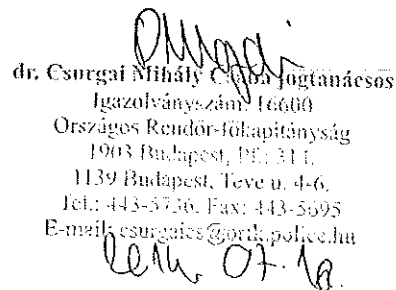 dr. Csurgai Mihály Csaba jogtanácsos
Igazolványszám: 16600
Országos Rendőr-főkapitányság
1903 Budapest, Pf.: 314.
1139 Budapest, Teve u. 4-6.
Tel.: 443-5736. Fax: 443-5695
E-mail: csurgaics@orfk.police.hu
07. 12.